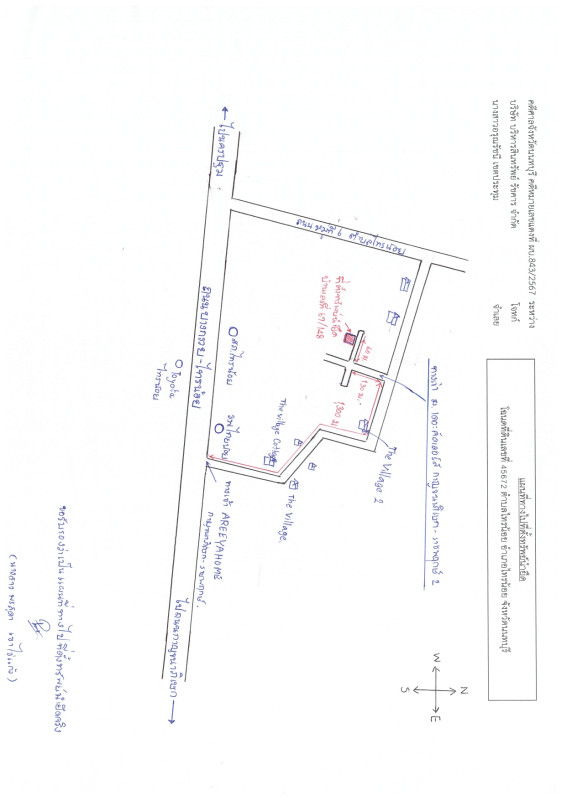 คดีศาลจังหวัดนนทบุรี คดีหมายเลขแดงที่ ผบ.843/2567 ระหว่าง
บริษัท บริหารสินทรัพย์ รัชคาร จำกัด โจทก์
นางสาวอรุณรัชนี เขตประทุม จำเลย
แผนที่ทางไปที่ตั้งทรัพย์นำยึด
โฉนดที่ดินเลขที่ 45672 ตำบลไทรน้อย อำเภอไทรน้อย จังหวัดนนทบุรี
N
W
E
S
ไปนครปฐม
ถนนบางกรวย-ไทรน้อย
สภ.ไทรน้อย
Toyota
ไทรน้อย
ที่ตั้งทรัพย์นำยึด
บ้านเลขที่ 47/148
60 ม.
130 ม.
1,300 ม.
The Village 2
The Village Cottage
The Village.
ทางเข้า AREEYAHOME
กาญจนาภิเษก-ราชพฤกษ์.
ไปถนนกาญจนาภิเษก
ขอรับรองว่าเป็นแผนที่การไปที่ตั้งทรัพย์นำยึดจริง